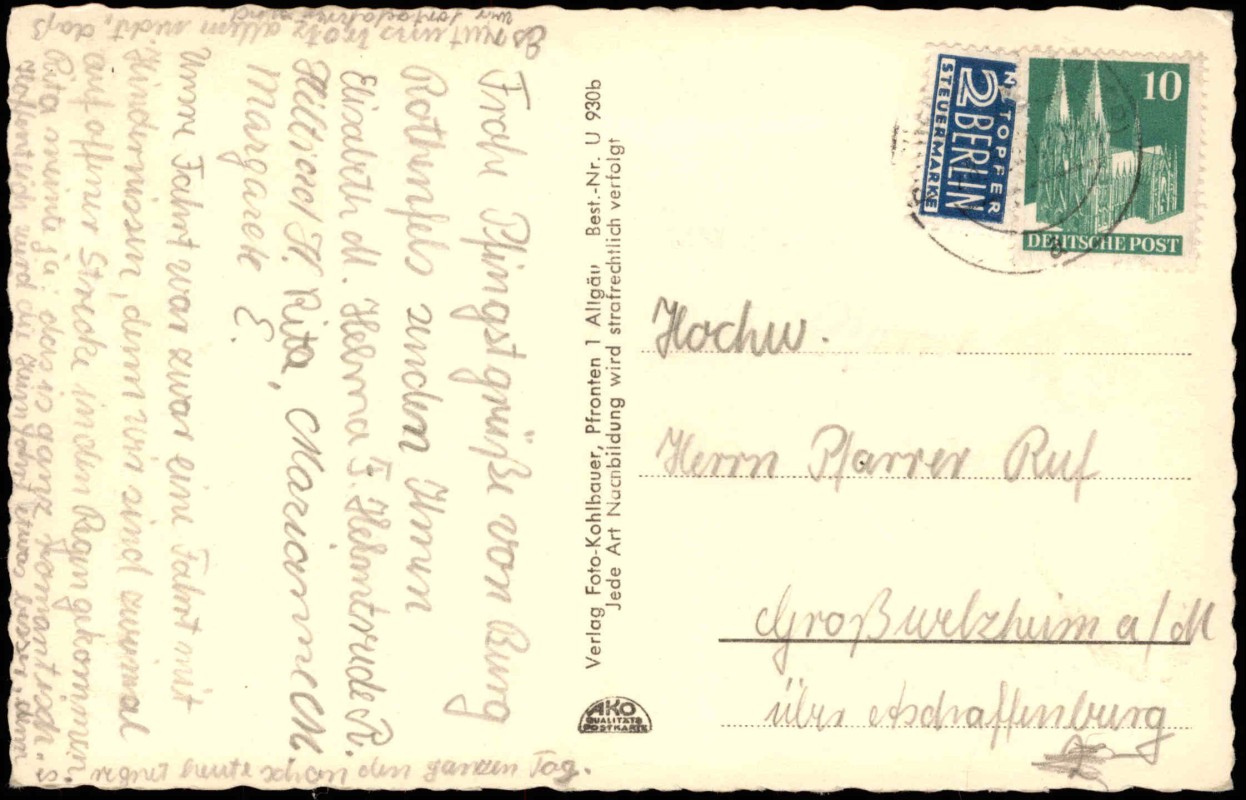 Frohe Pfingstgrüße von Burg
Rothenfels senden Ihnen
Elisabeth M. Helma F. Hiltrude R.
Hiltrud H. Rita, Marianne M
Margarete E.
Unsere Fahrt war zwar eine Fahrt mit
Hindernissen, denn wir sind zweimal
auf offner Strecke in den Regen gekommen
Rita meinte ja, das is ganz romantisch.
Hoffentlich wird die Heimfahrt etwas besser, denn
es regnet heute schon den ganzen Tag.
Es reut uns trotz allem nicht, daß
wir fortgefahren sind.
Verlag Foto-Kohlbauer, Pfronten 1 Allgäu Best.-Nr. U 930b
Jede Art Nachbildung wird strafrechtlich verfolgt
AKO
QUALITÄTS
POSTKARTE
NOTOPFER
2 BERLIN
STEUERMARKE
10
DEUTSCHE POST
Hochw.
Herrn Pfarrer Ruf
Großwelzheim a/M
über Aschaffenburg